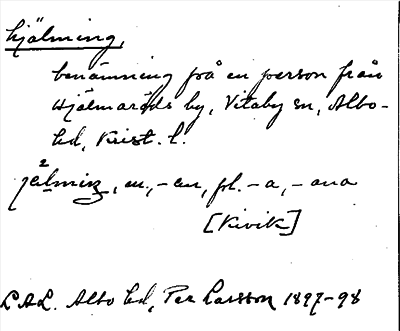 hjälming,
benämning på en person från
Hjälmaröds by, Vitaby sn, Albo-
hd, Krist. l.
jälmiŋ, en, -en, pl. -a, -ana
[Kivik]
LAL. Albo hd, Per Larsson 1897-98